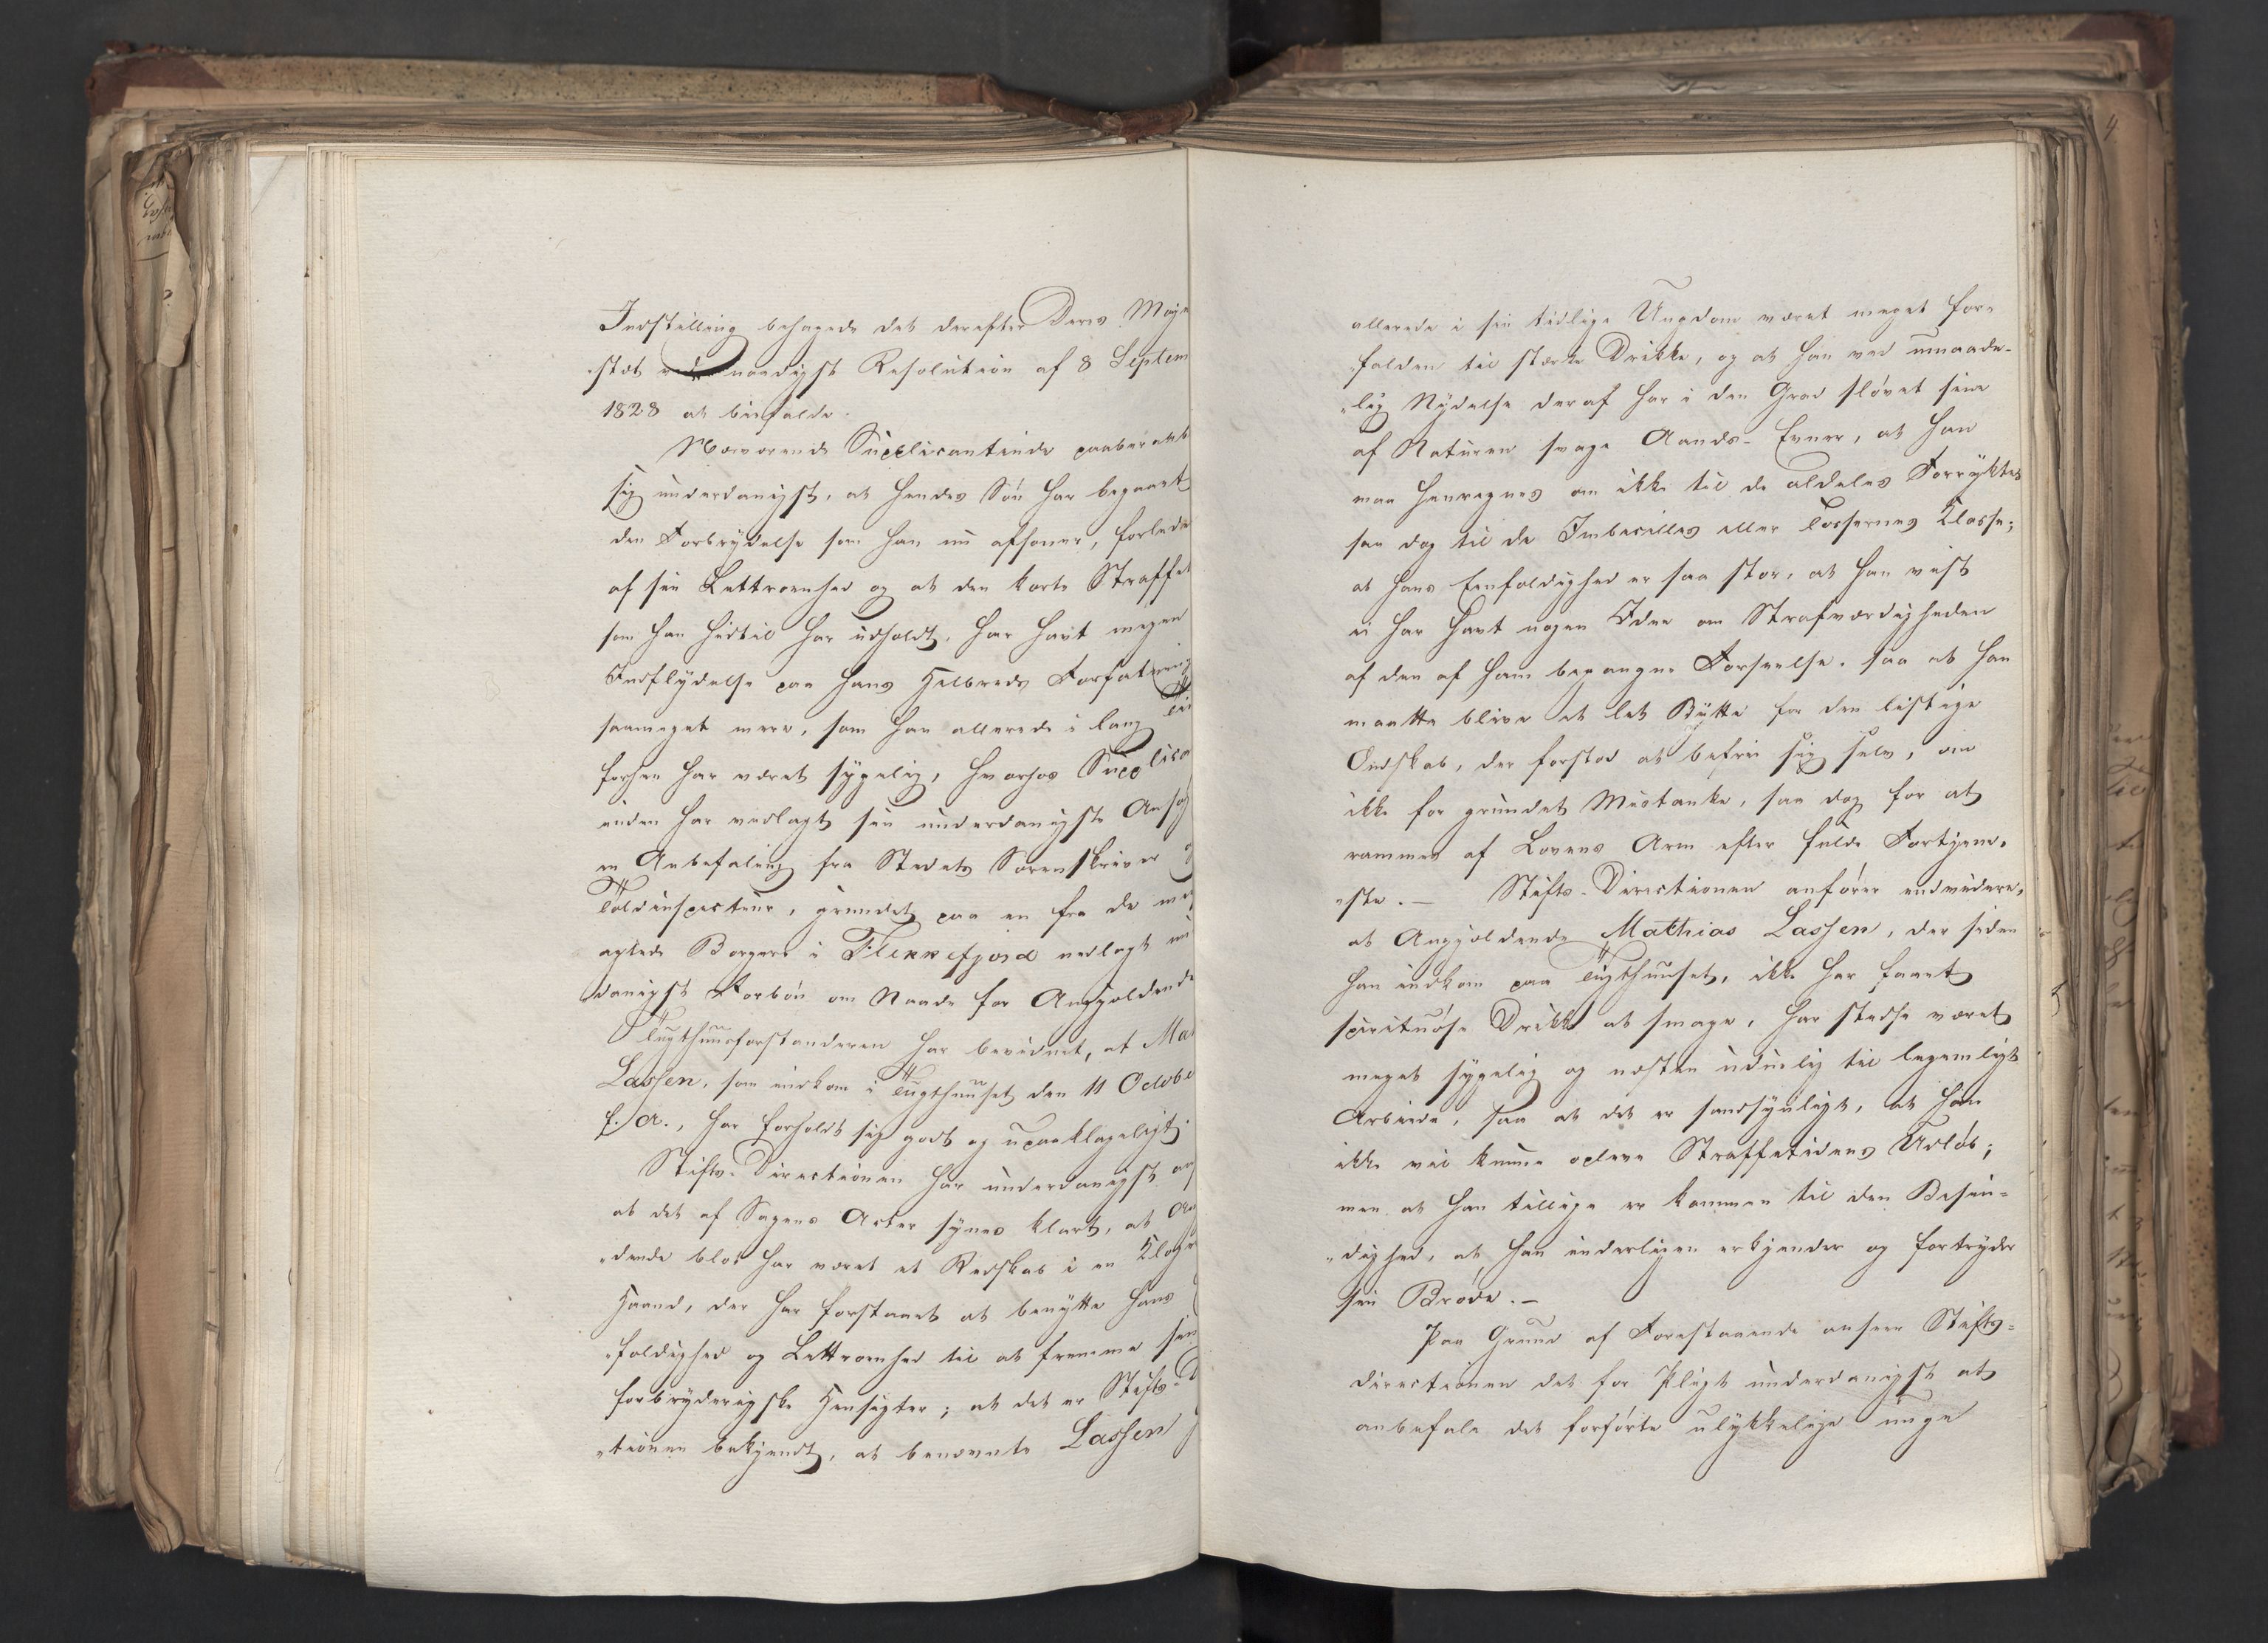 Indstilling behagede det derefter Deres Maje
stæt ved naadigst Resolution af 8 Septem
1828 at bifalde.
Nærværende Supplicantinde paaberaab
sig underdanigst, at hendes Søn har begaaet
den Forbrydelse som han nu afsoner, forledet
af sin Lettroenhed og at den korte Straffet
som han hidtil har udholdt, har havt megen
Indflydelse paa hans Helbreds Forfatning
saameget mere, som han allerede i lang Tid
forhen har været sygelig, hvorhos Supplica
inden har vedlagt sin underdanigste Ansøg
en Anbefaling fra Stedets Sorenskriver og
Toldinspecteur, grundet paa en fra de me
agtede Borgere i Flekkefjord vedlagt un
danigst Forbøn om Naade for Angjældende
Tugthuusforstanderen har bevidnet, at Mat
Lassen, som indkom i Tugthuuset den 11 Octobe
f. A., har forholdt sig godt og upaaklageligt.
Stifts-Directionen har underdanigst an
at det af Sagens Acter synes klart, at An
"dende blot har været et Redskab i en Kløgt
Haand, der har forstaaet at benytte hans
"foldighed og Lettroenhed til at fremme sin
forbryderigske Hensigter; at det er Stifts-D
"tionen bekjendt, at benævnte Lassen
allerede i sin tidlige Ungdom været meget for-
"falden til stærke Drikke, og at han ved umaade-
"lig Nydelse deraf har i den Grad sløvet sine
af Naturen svage Aands-Evner, at han
maa henregnes om ikke til de aldeles Forrykte
saa dog til de Imbecilles eller Tossernes Klasse;
at hans Eenfoldighed er saa stor, at han vist
ei har havt nogen Idee om Strafværdigheden
af den af ham begangne Forseelse, saa at han
maatte blive et let Bytte for den listige
Ondskab, der forstod at befrie sig selv, om
ikke for grundet Mistanke, saa dog for at
rammes af Lovens Arm efter fulde Fortjene-
"ste. — Stifts-Directionen anfører endvidere,
at Angjældende Mathias Lassen, der siden
han indkom paa Tugthuuset, ikke har faaet
spirituøse Drikke at smage, har stedse været
meget sygelig og næsten uduelig til legemligt
Arbeide, saa at det er sandsynligt, at han
ikke vil kunne opleve Straffetidens Udløb;
men at han tillige er kommen til den Besin-
"dighed, at han inderligen erkjender og fortryder
sin Brøde. —
Paa Grund af Forestaaende anseer Stifts-
directionen det for Pligt underdanigst at
anbefale det forførte ulykkelige unge